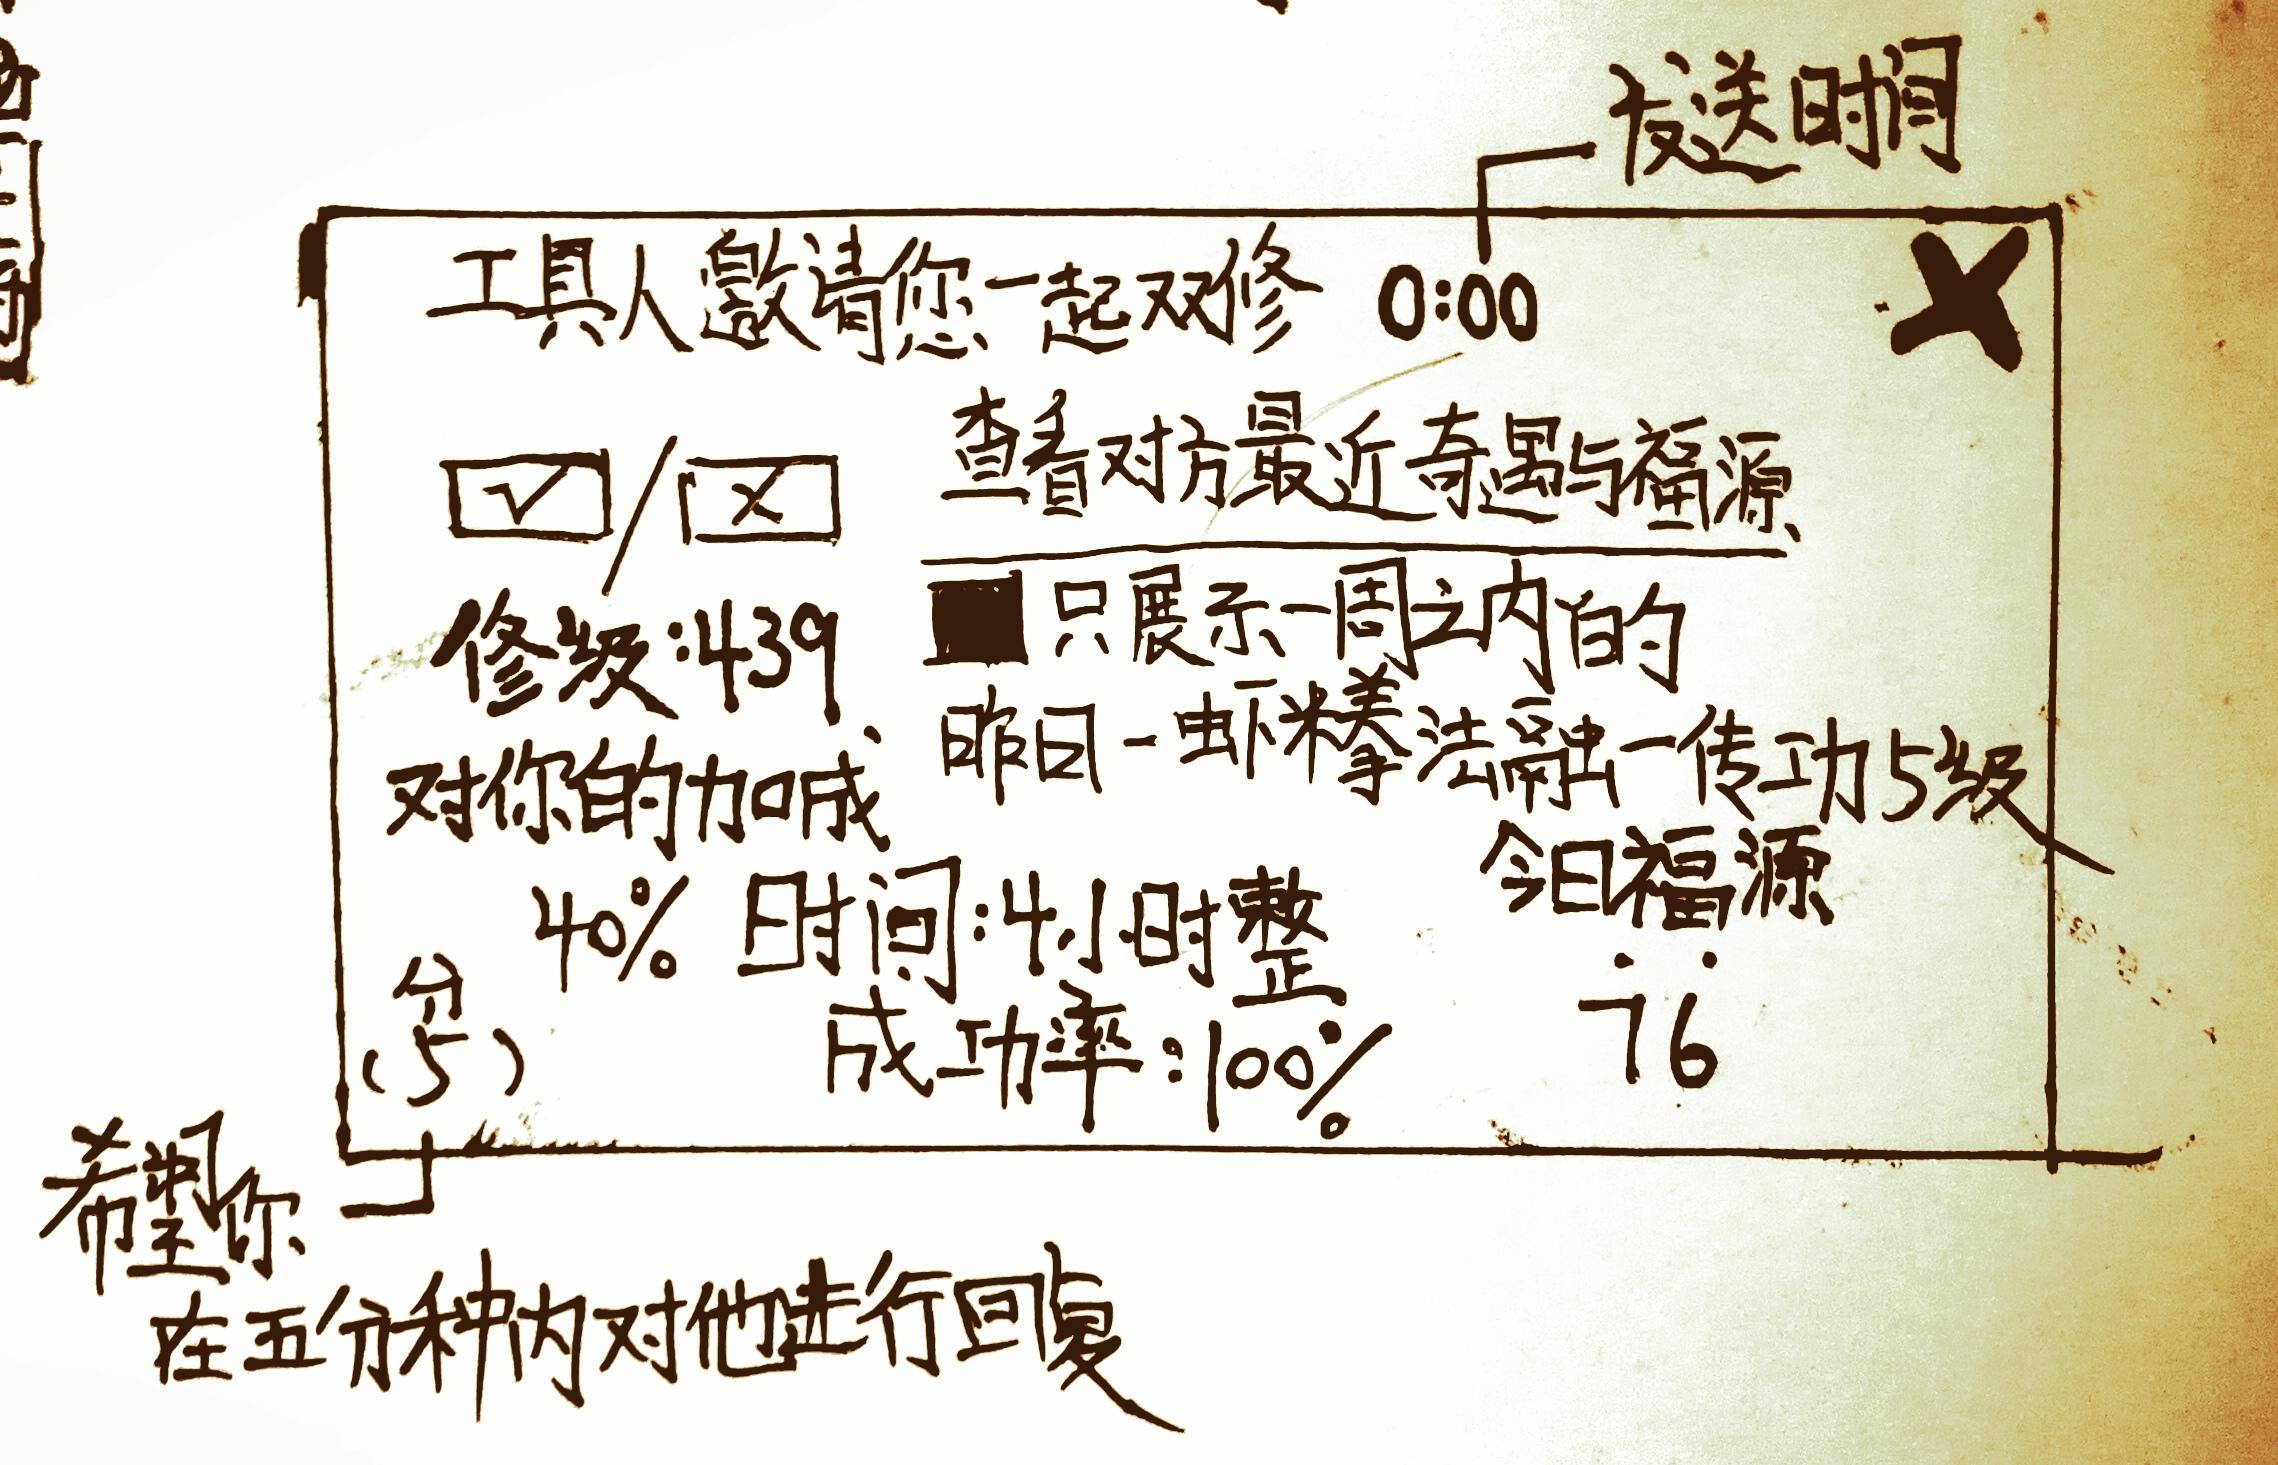 发送时间
工具人邀请您一起双修 0:00 X
☑/☒
查看对方最近奇遇与福源
修级:439
■只展示一周之内的
昨日-虾米拳法融一传功5级
对你的加成
40% 时间:4小时整
今日福源
:
76
成功率:100%
分
(5)
希望你
在五分种内对他进行回复